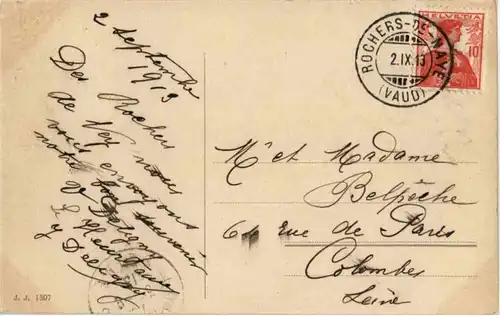 2 Septembre
1913
Des Rochers
de Naye nous
vous envoyons
notre souvenir
HELVETIA
10
ROCHERS-DE-NAYE
2.IX.13
(VAUD)
Mr et Madame
Belpêche
rue de Paris
Colombes
Seine
J. J. 1397